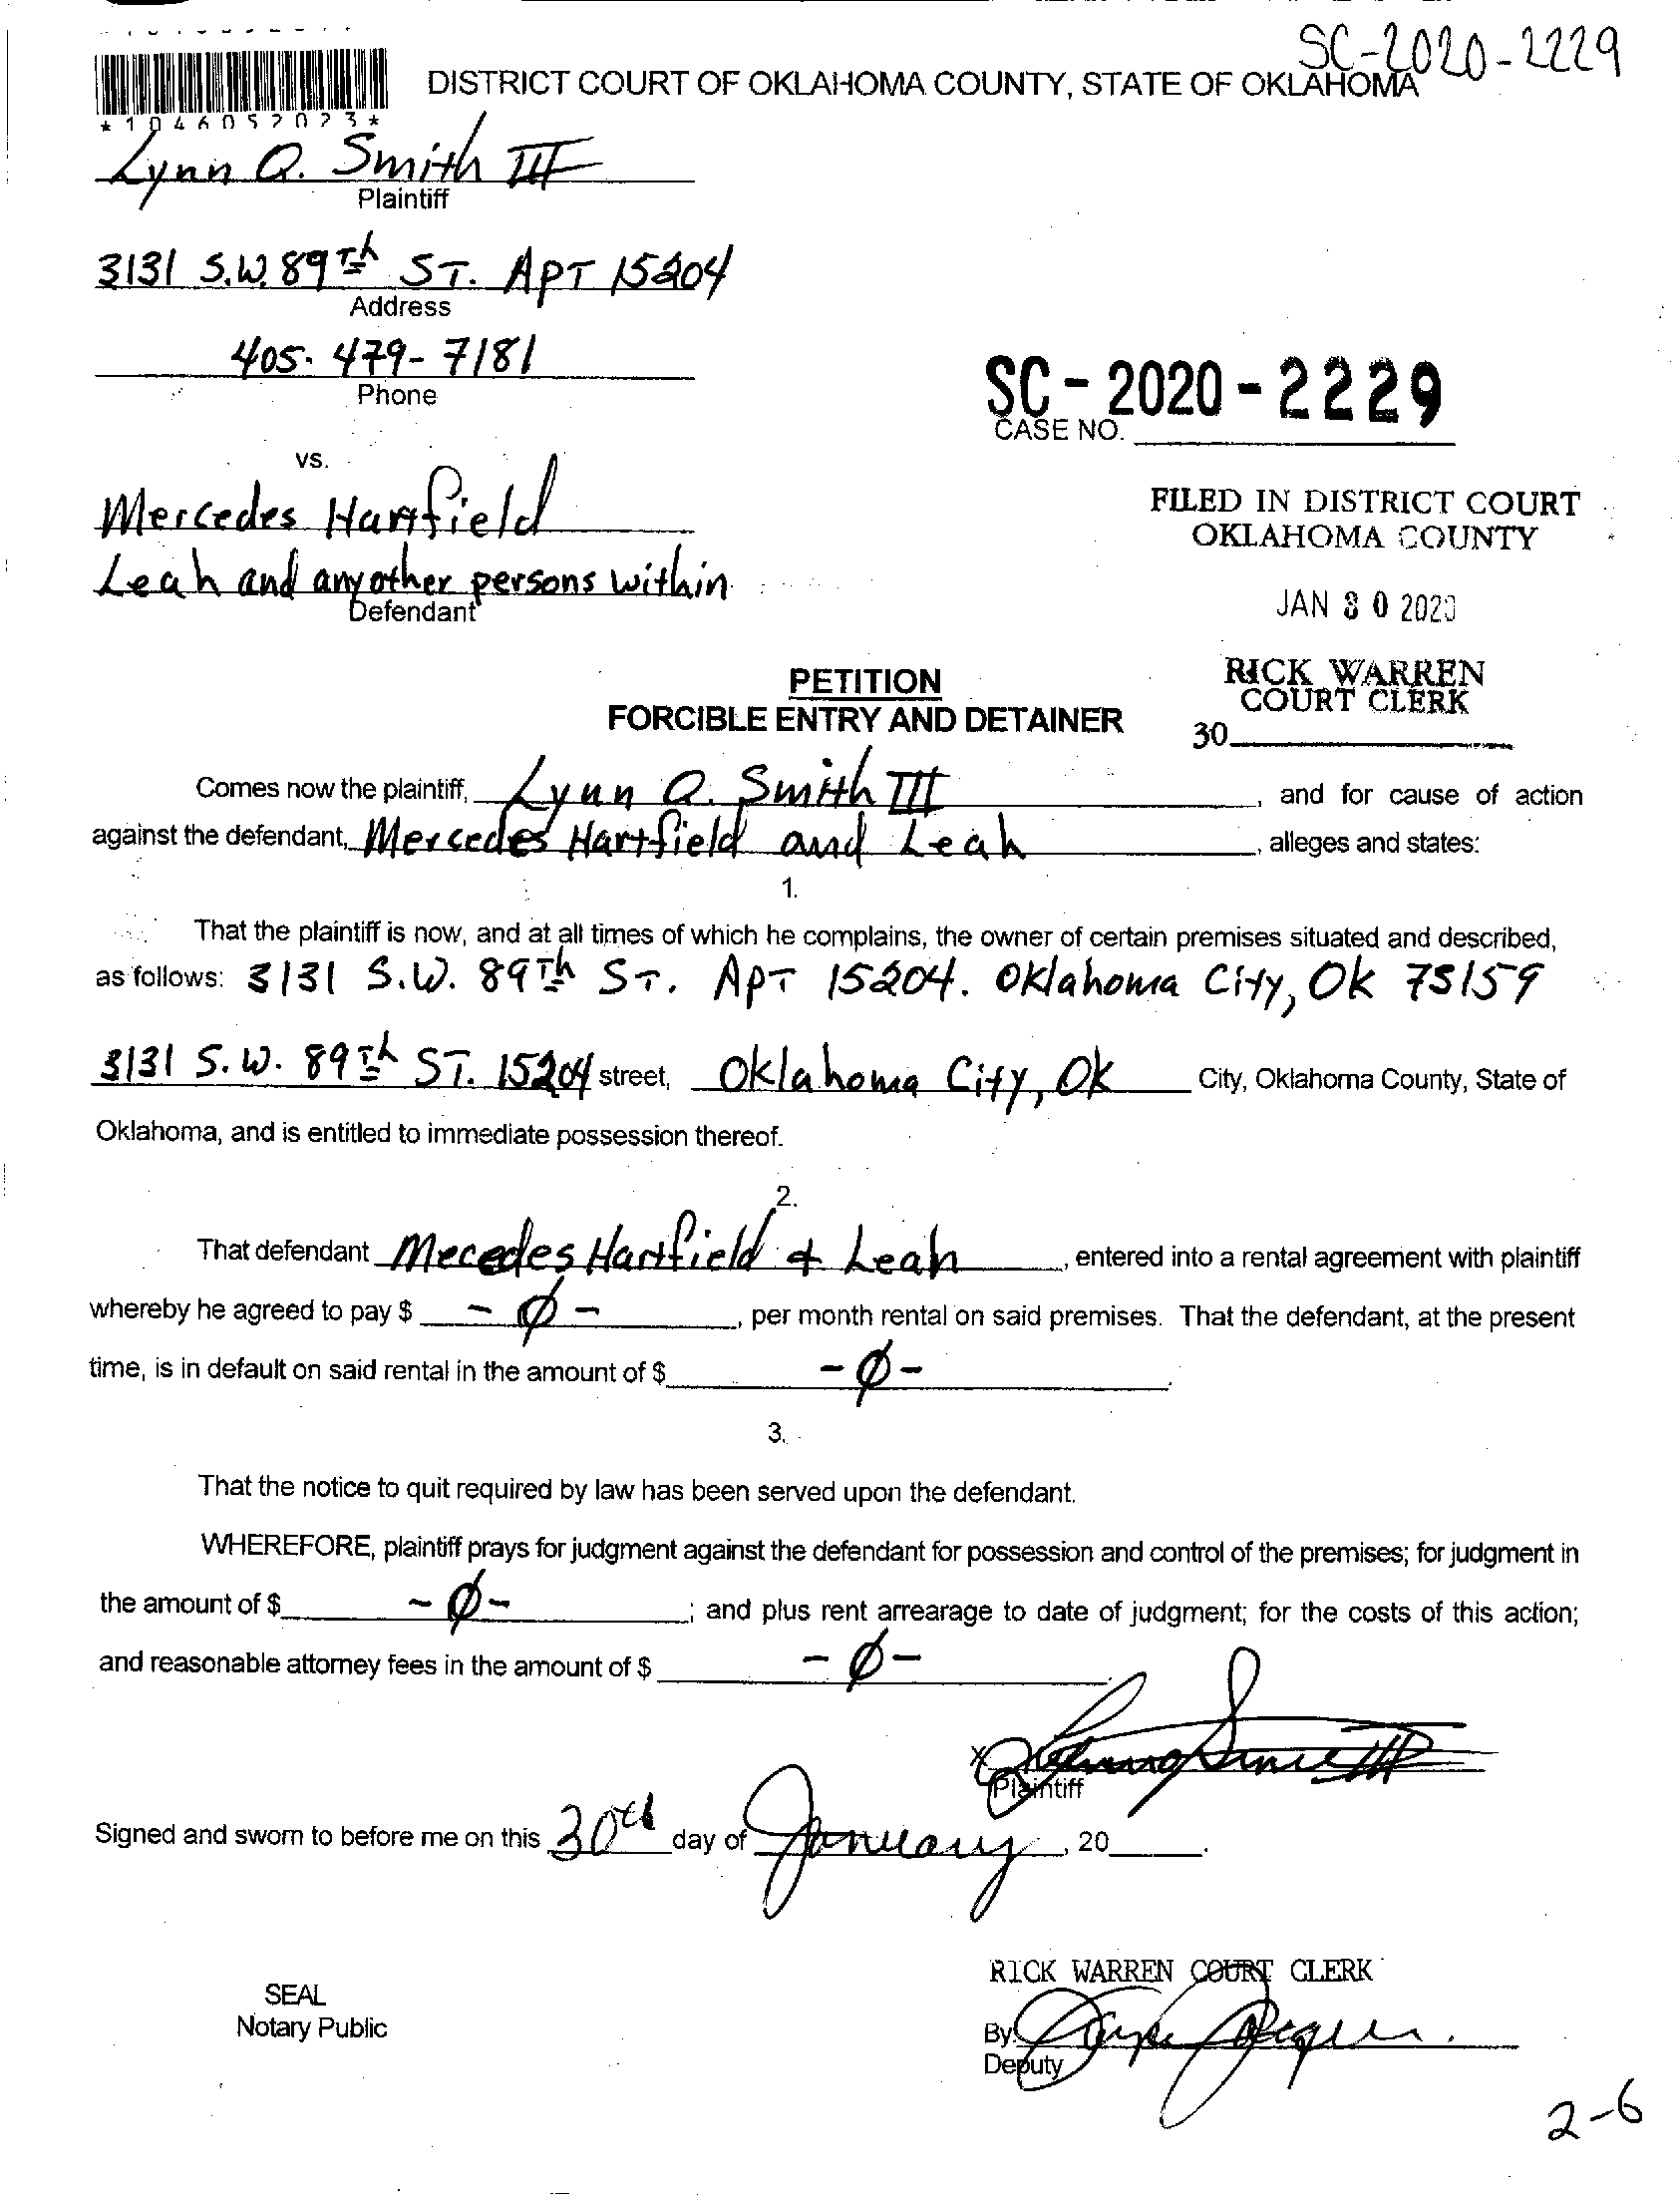 SC-2020-2229
DISTRICT COURT OF OKLAHOMA COUNTY, STATE OF OKLAHOMA
*1046052023*
Lynn Q. Smith III
Plaintiff
3131 S.W. 89Th ST. APT 15204
Address
405-479-7181
Phone
SC-2020-2229
CASE NO.
vs.
Mercedes Hartfield
Leah and any other persons within
Defendant
FILED IN DISTRICT COURT
OKLAHOMA COUNTY
JAN 30 2020
RICK WARREN
COURT CLERK
30
PETITION
FORCIBLE ENTRY AND DETAINER
Comes now the plaintiff, Lynn Q. Smith III, and for cause of action
against the defendant, Mercedes Hartfield and Leah, alleges and states:
1.
That the plaintiff is now, and at all times of which he complains, the owner of certain premises situated and described,
as follows: 3131 S.W. 89Th ST. APT 15204. Oklahoma City, Ok 73159
3131 S.W. 89Th ST. 15204 street, Oklahoma City, Ok City, Oklahoma County, State of
Oklahoma, and is entitled to immediate possession thereof.
2.
That defendant Mecedes Hartfield + Leah, entered into a rental agreement with plaintiff
whereby he agreed to pay $ -Ø-, per month rental on said premises. That the defendant, at the present
time, is in default on said rental in the amount of $ -Ø-.
3.
That the notice to quit required by law has been served upon the defendant.
WHEREFORE, plaintiff prays for judgment against the defendant for possession and control of the premises; for judgment in
the amount of $ -Ø-; and plus rent arrearage to date of judgment; for the costs of this action;
and reasonable attorney fees in the amount of $ -Ø-.
X
Plaintiff
Signed and sworn to before me on this 30th day of January, 20.
RICK WARREN COURT CLERK
SEAL
Notary Public
By:
Deputy
2-6